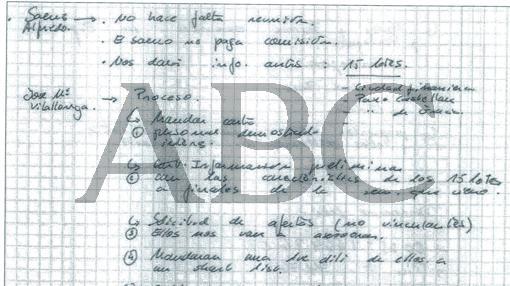 Saenz Alfredo. → . No hace falta reunión.
. E Saenz no paga comisión.
. Nos dará info. antes : 15 lotes.
- Ciudad financiera
- Paseo Castellana
" de Gracia.
Jose Mª Villalonga. → Proceso.
↳ Mandar carta
① personal demostrando interés.
↳ Información preliminar
② con las características de los 15 lotes
a finales de la semana que viene.
↳ Solicitud de ofertas (no vinculantes)
③ Ellos nos van a asesorar.
④ Mandaran una de ellos a
un short list.
ABC